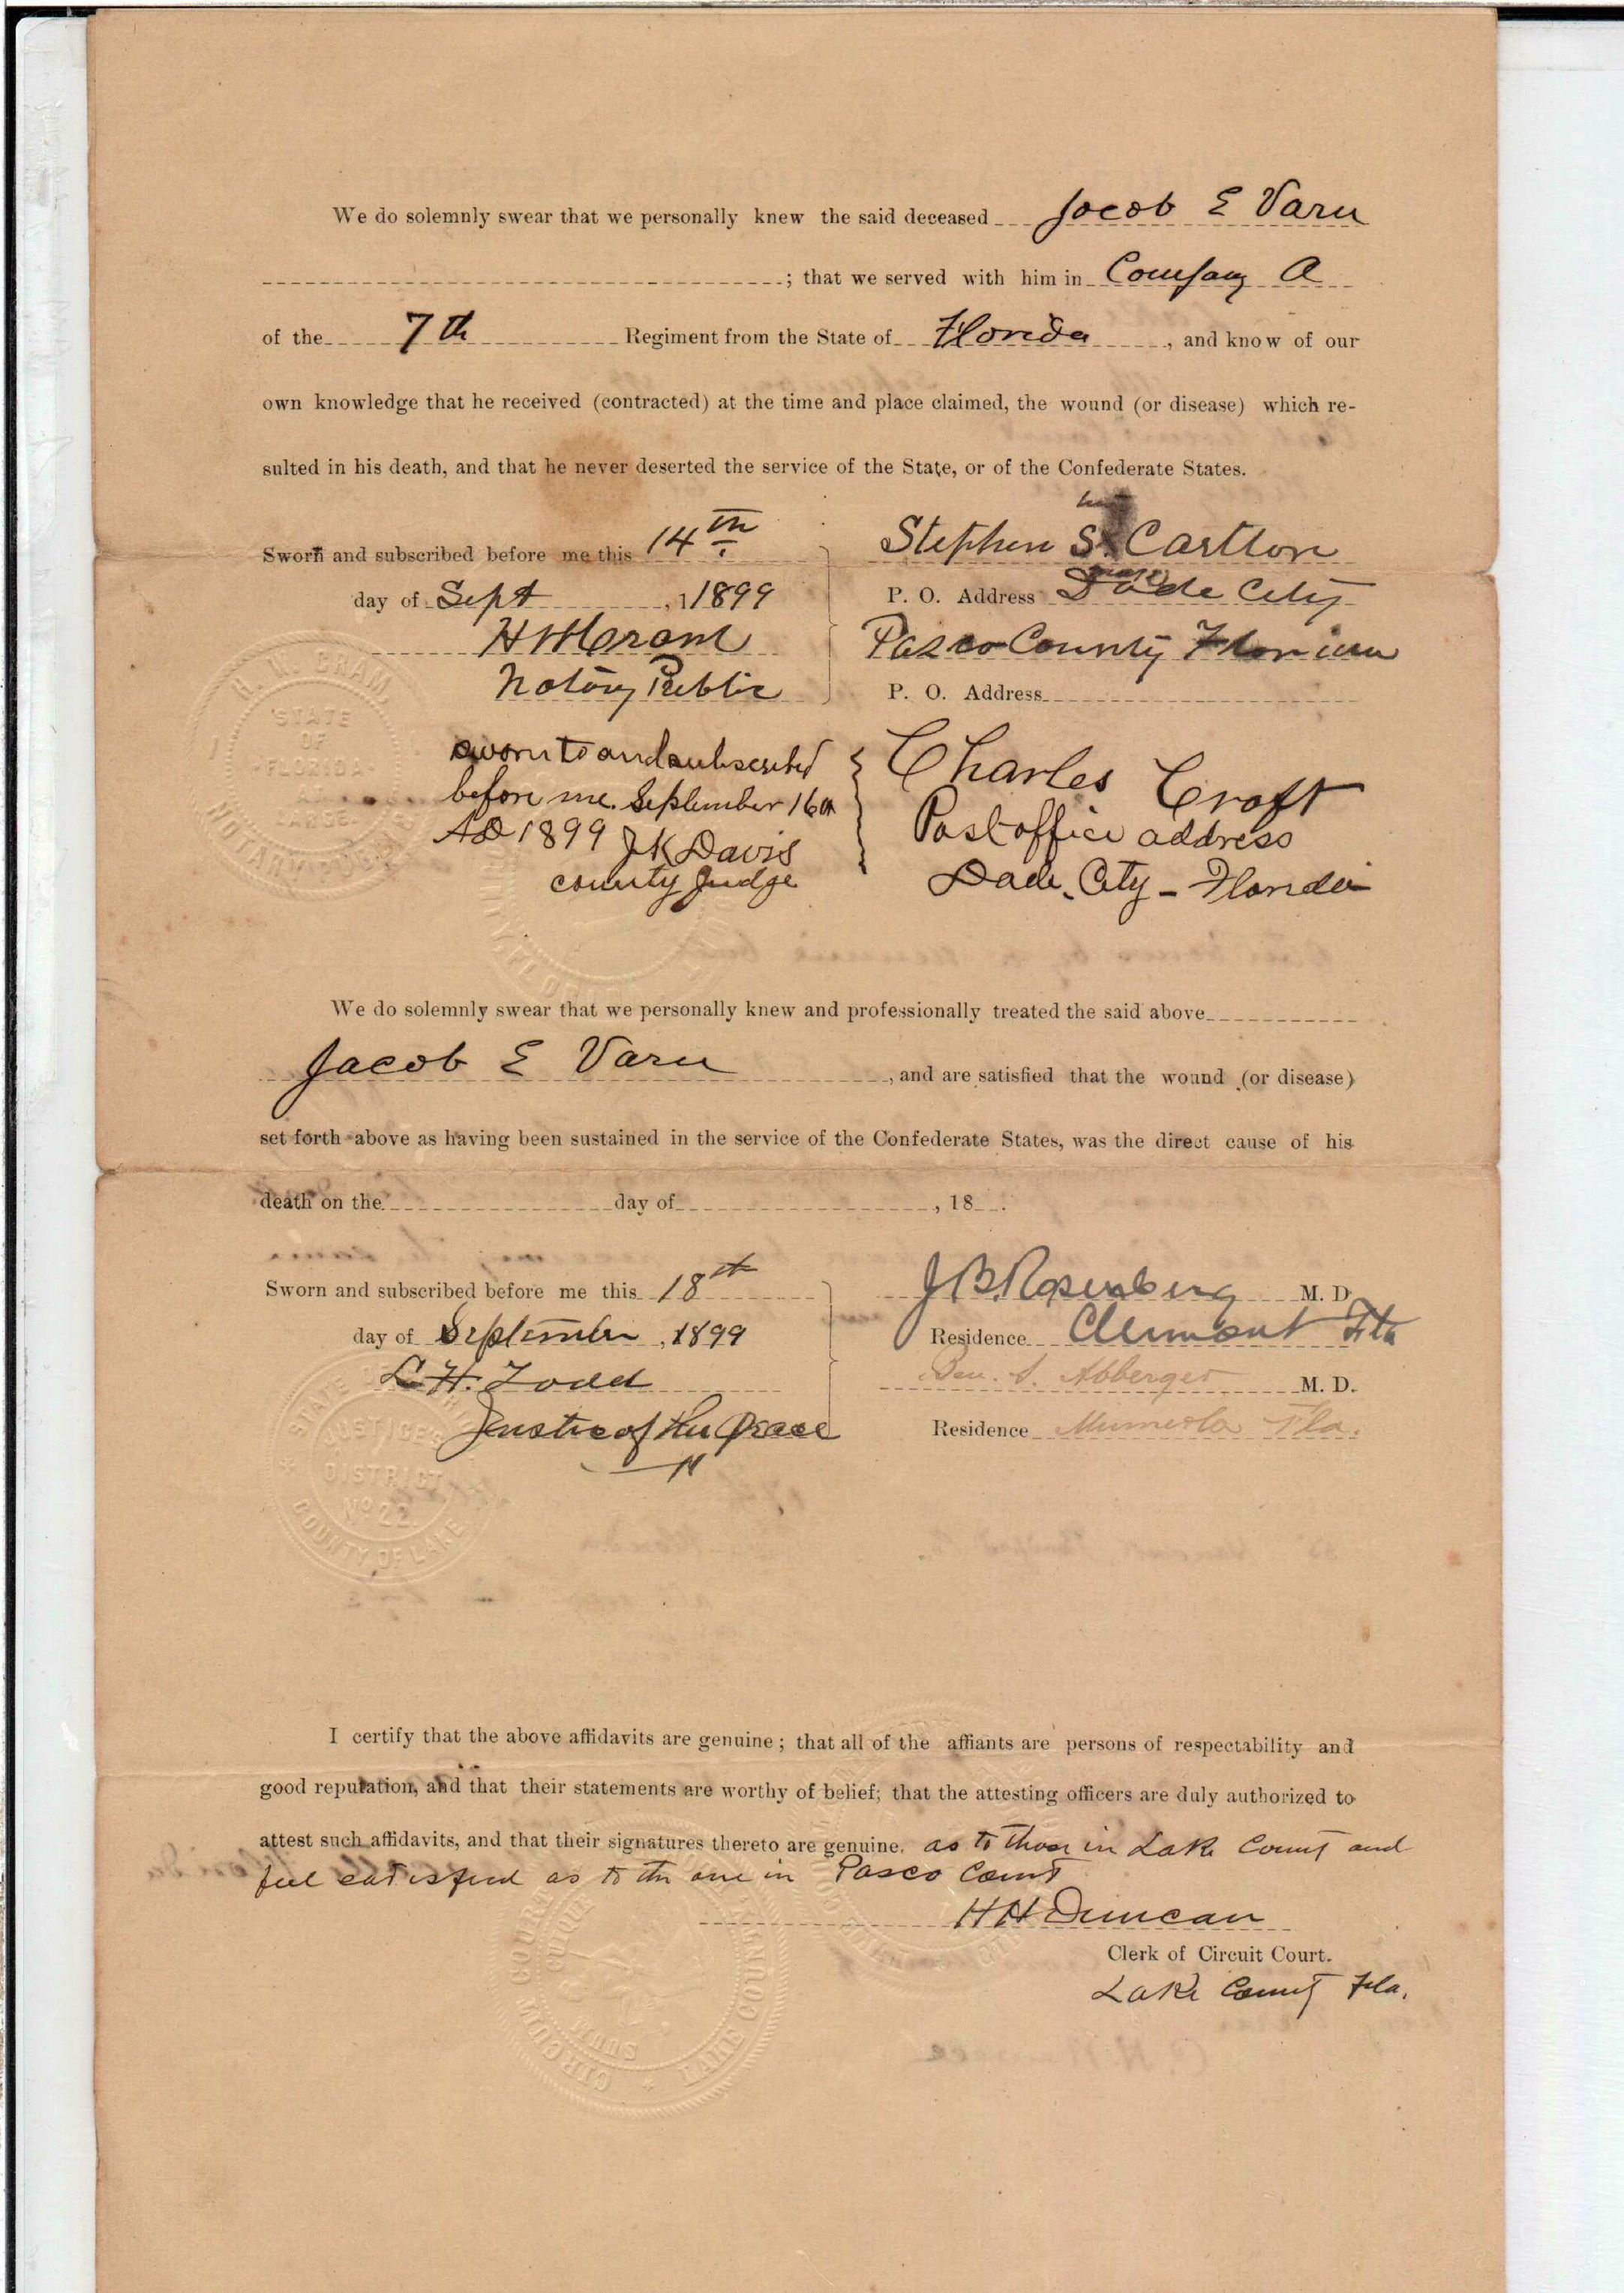 We do solemnly swear that we personally knew the said deceased Jacob E Varn
; that we served with him in Company A
of the 7th Regiment from the State of Florida, and know of our
own knowledge that he received (contracted) at the time and place claimed, the wound (or disease) which re-
sulted in his death, and that he never deserted the service of the State, or of the Confederate States.
Sworn and subscribed before me this 14th
day of Sept, 1899
H W Gram
Notary Public
his
Stephen S X Carlton
mark
P. O. Address Dade City
Pasco County Florida
P. O. Address
H. W. GRAM
STATE
OF
FLORIDA
AT
LARGE
NOTARY PUBLIC
sworn to and subscribed
before me September 16th
AD 1899 J K Davis
county Judge
Charles Croft
Post office address
Dade City - Florida
We do solemnly swear that we personally knew and professionally treated the said above
Jacob E Varn, and are satisfied that the wound (or disease)
set forth above as having been sustained in the service of the Confederate States, was the direct cause of his
death on the day of , 18 .
Sworn and subscribed before me this 18th
day of September, 1899
L. H. Todd
Justice of the Peace
J B. Rosenberg M. D.
Residence Clermont Fla
Ben. S. Abberger M. D.
Residence Minneola Fla.
JUSTICES
DISTRICT
No 22
COUNTY OF LAKE
I certify that the above affidavits are genuine; that all of the affiants are persons of respectability and
good reputation, and that their statements are worthy of belief; that the attesting officers are duly authorized to
attest such affidavits, and that their signatures thereto are genuine. as to those in Lake County and
feel satisfied as to the one in Pasco County
H H Duncan
Clerk of Circuit Court.
Lake County Fla.
CIRCUIT COURT
LAKE COUNTY